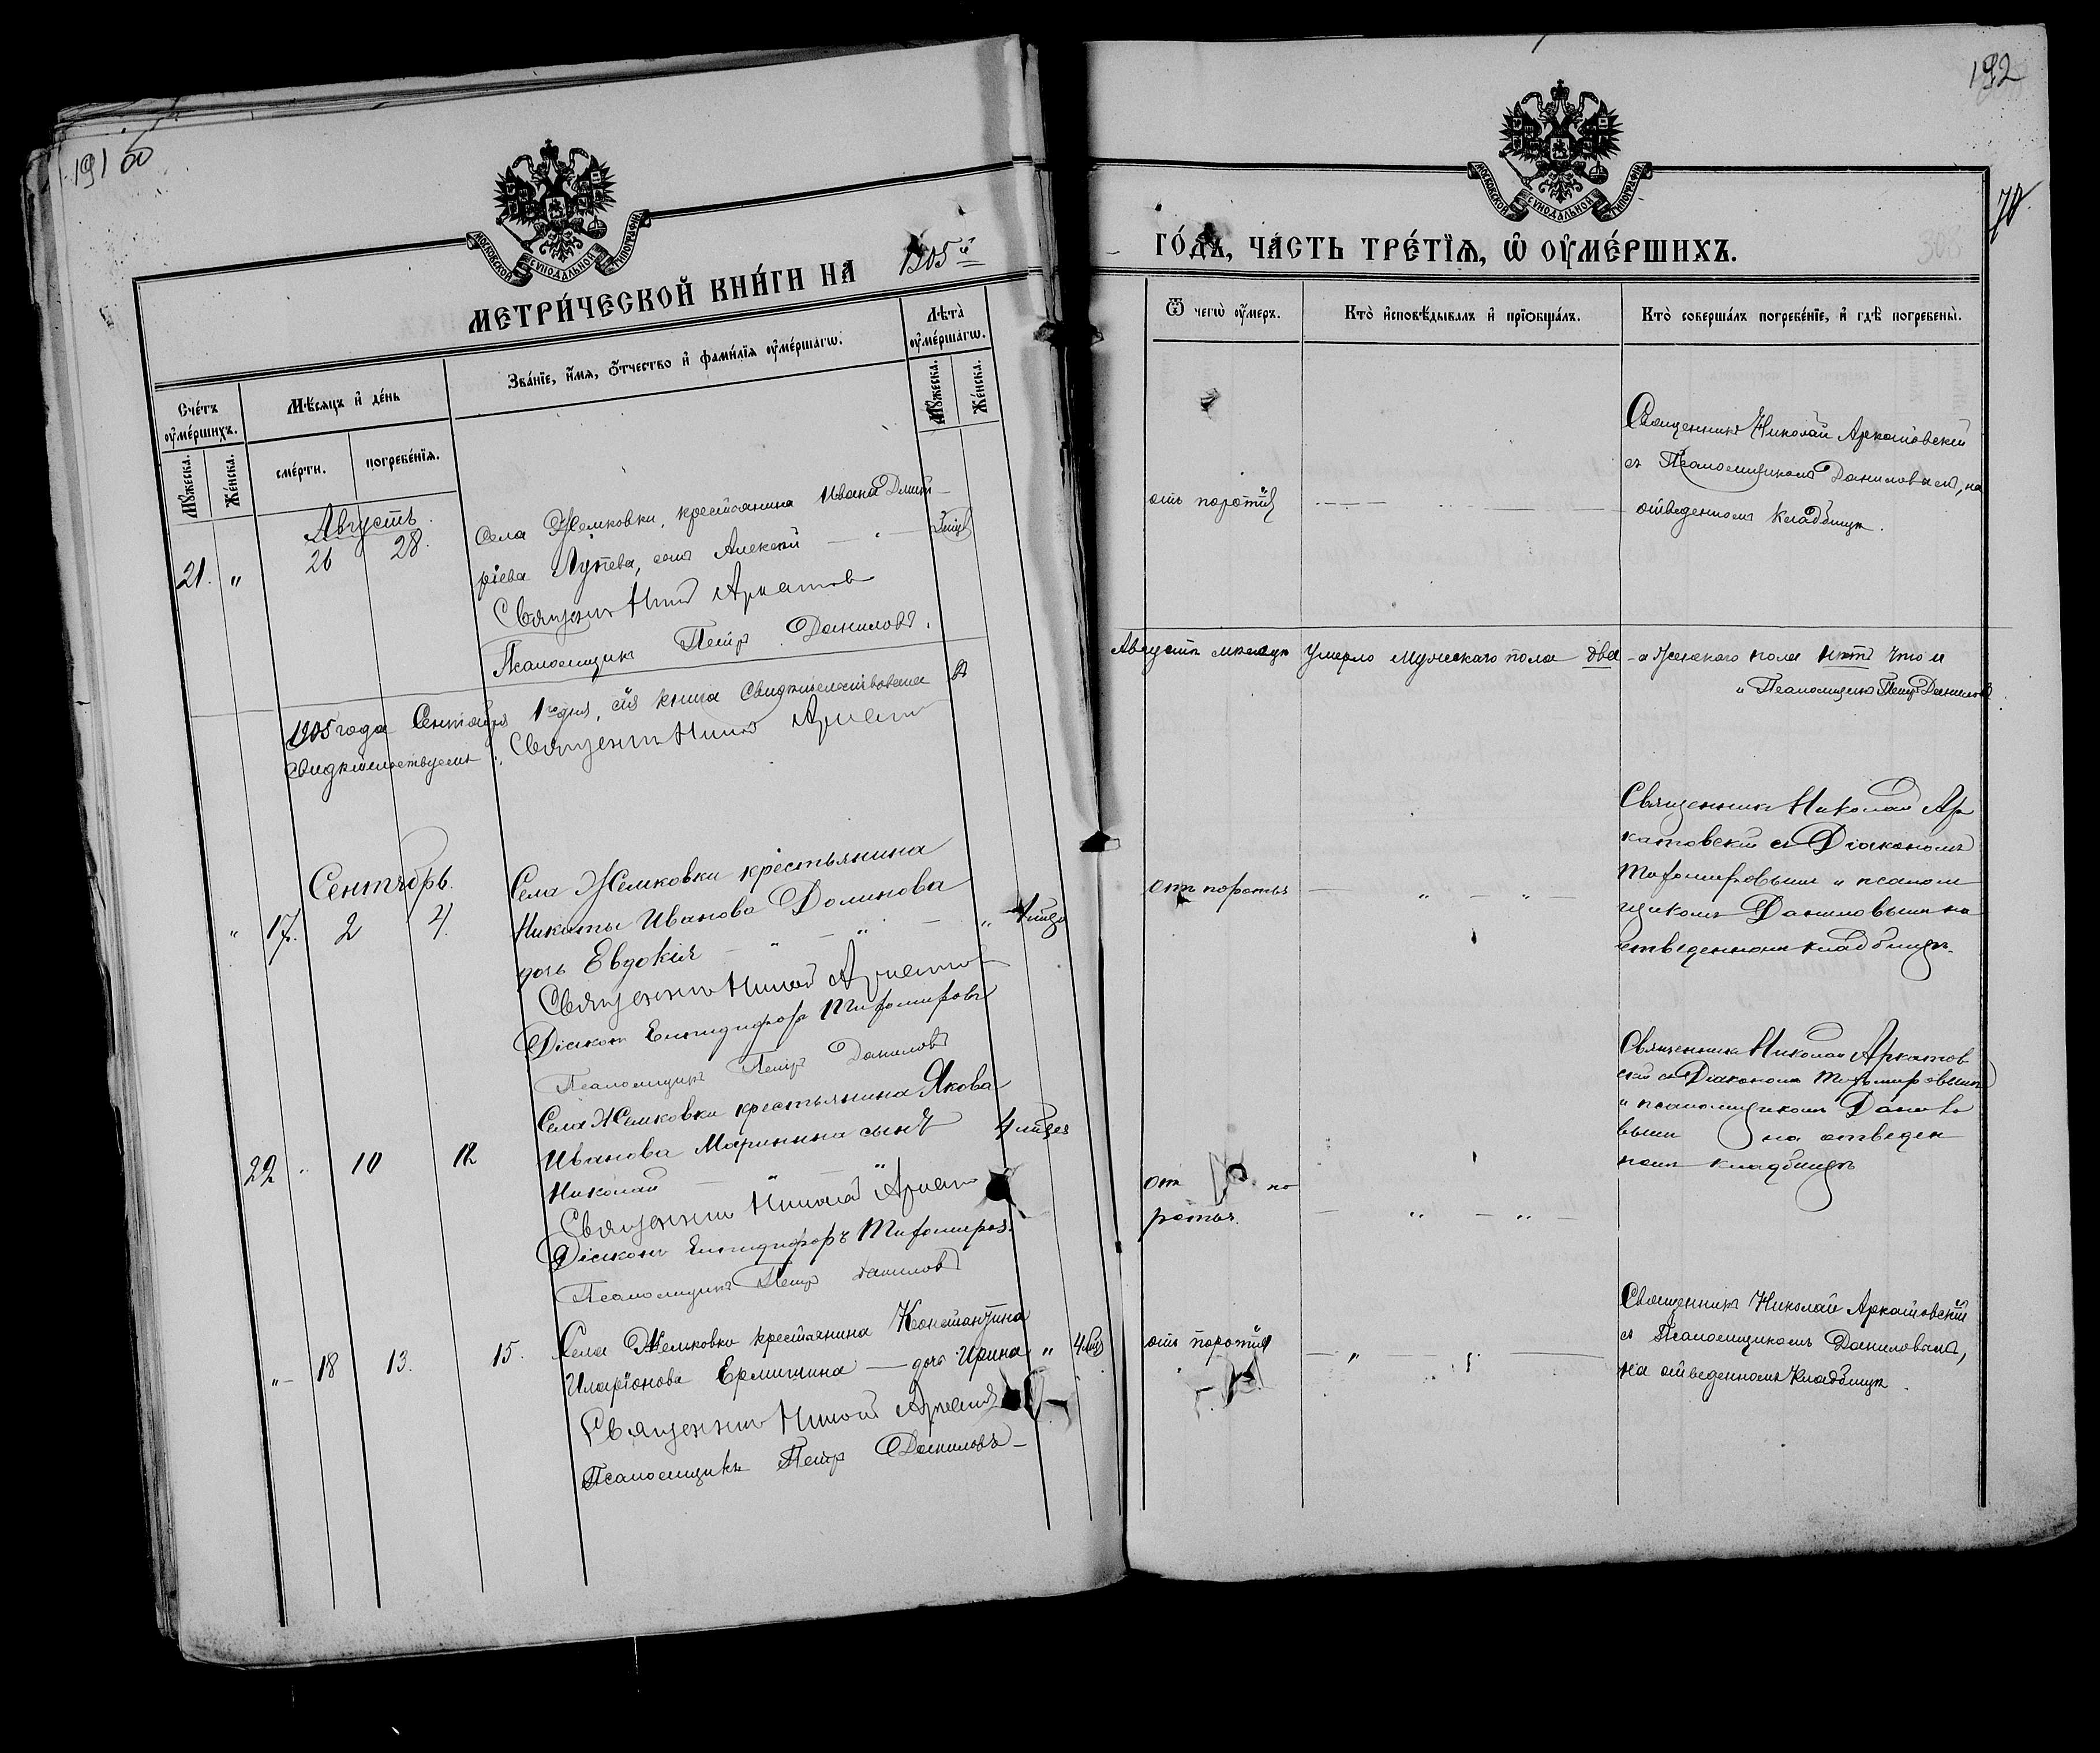 191 об
192
70
МОСКОВСКОЙ СѴНОДАЛЬНОЙ ТИПОГРАФІИ
МОСКОВСКОЙ СѴНОДАЛЬНОЙ ТИПОГРАФІИ
МЕТРИ́ЧЕСКОЙ КНИ́ГИ НА 1905й
ГО́ДЪ, ЧА́СТЬ ТРЕ́ТЇѦ, Ѡ҆ ОУ҆МЕ́РШИХЪ.
Сче́тъ оу҆ме́ршихъ.
Мѣ́сѧцъ и҆ де́нь
Зва́нїе, и҆́мѧ, ѻ҆́тчество и҆ фами́лїѧ оу҆ме́ршагѡ.
Лѣ́та оу҆ме́ршагѡ.
Мꙋ́жеска.
Же́нска.
сме́рти.
погребе́нїѧ.
Мꙋ́жеска.
Же́нска.
Ѿ чегѡ̀ оу҆́меръ.
Кто̀ и҆сповѣ́дывалъ и҆ прїѡбща́лъ.
Кто̀ соверша́лъ погребе́нїе, и҆ гдѣ̀ погребены̀.
Августъ.
21. " 26 28.
Села Жемковки, крестьянина Ивана Дмит-
ріева Лупева, сынъ Алексѣй
Священ Ник Аркатов
Псаломщикъ Петръ Даниловъ.
отъ поротія
Священникъ Николай Аркатовскій
съ Псаломщикомъ Даниловымъ, на
отведенномъ кладбищѣ.
Августѣ мѣсяцѣ умерло мужескаго пола два - а женскаго пола нѣтъ что и
и Псаломщикъ Петръ Даниловъ
1905 года Сентября 1го дня, сія книга свидѣтельствована
свидѣтельствуемъ: Священник Никол Аркато
Сентябрь.
" 17. 2 4.
Села Жемковки крестьянина
Никиты Иванова Долинова
дочь Евдокія
Священник Никол Аркато
Діаконъ Епидифоръ Тифомировъ
Псаломщикъ Петръ Даниловъ
отъ поротья
Священникъ Николай Ар
катовскій съ Діакономъ
Тифомировымъ и псалом
щикомъ Даниловымъ на
отведенномъ кладбищѣ.
22 " 10 12
Села Жемковки крестьянина Якова
Иванова Маринина сынъ
Николай
Священник Николай Аркато
Діаконъ Епидифоръ Тифомиров.
Псаломщикъ Петръ Даниловъ
от по
ротья.
Священникъ Николай Аркатов
скій съ Діакономъ Тифомировымъ
и псаломщикомъ Данило
вымъ на отведен
номъ кладбищѣ
" 18 13. 15.
Села Жемковки крестьянина Константина
Иларіонова Ермишина — дочь Ирина "
Священник Никол Аркатов
Псаломщикъ Петръ Даниловъ
отъ поротія
Священникъ Николай Аркатовскій
съ Псаломщикомъ Даниловымъ,
на отведенномъ кладбищѣ.